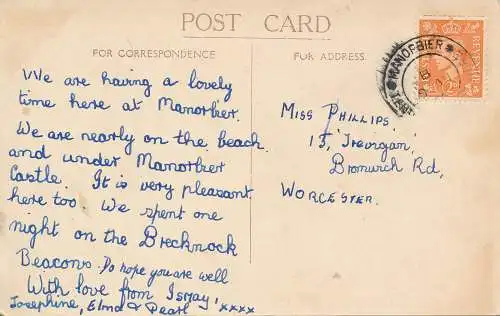 POST CARD
FOR CORRESPONDENCE
FOR ADDRESS.
MANORBIER
REVENUE
We are having a lovely
time here at Manorbier.
We are nearly on the beach
and under Manorbier
Castle. It is very pleasant
here too. We spent one
night on the Brecknock
Beacons. Do hope you are well
With love from Ismay,
Josephine, Elma & Pearl xxxx
Miss Phillips
15, 'Trevrgan',
Bromwich Rd,
Worcester.